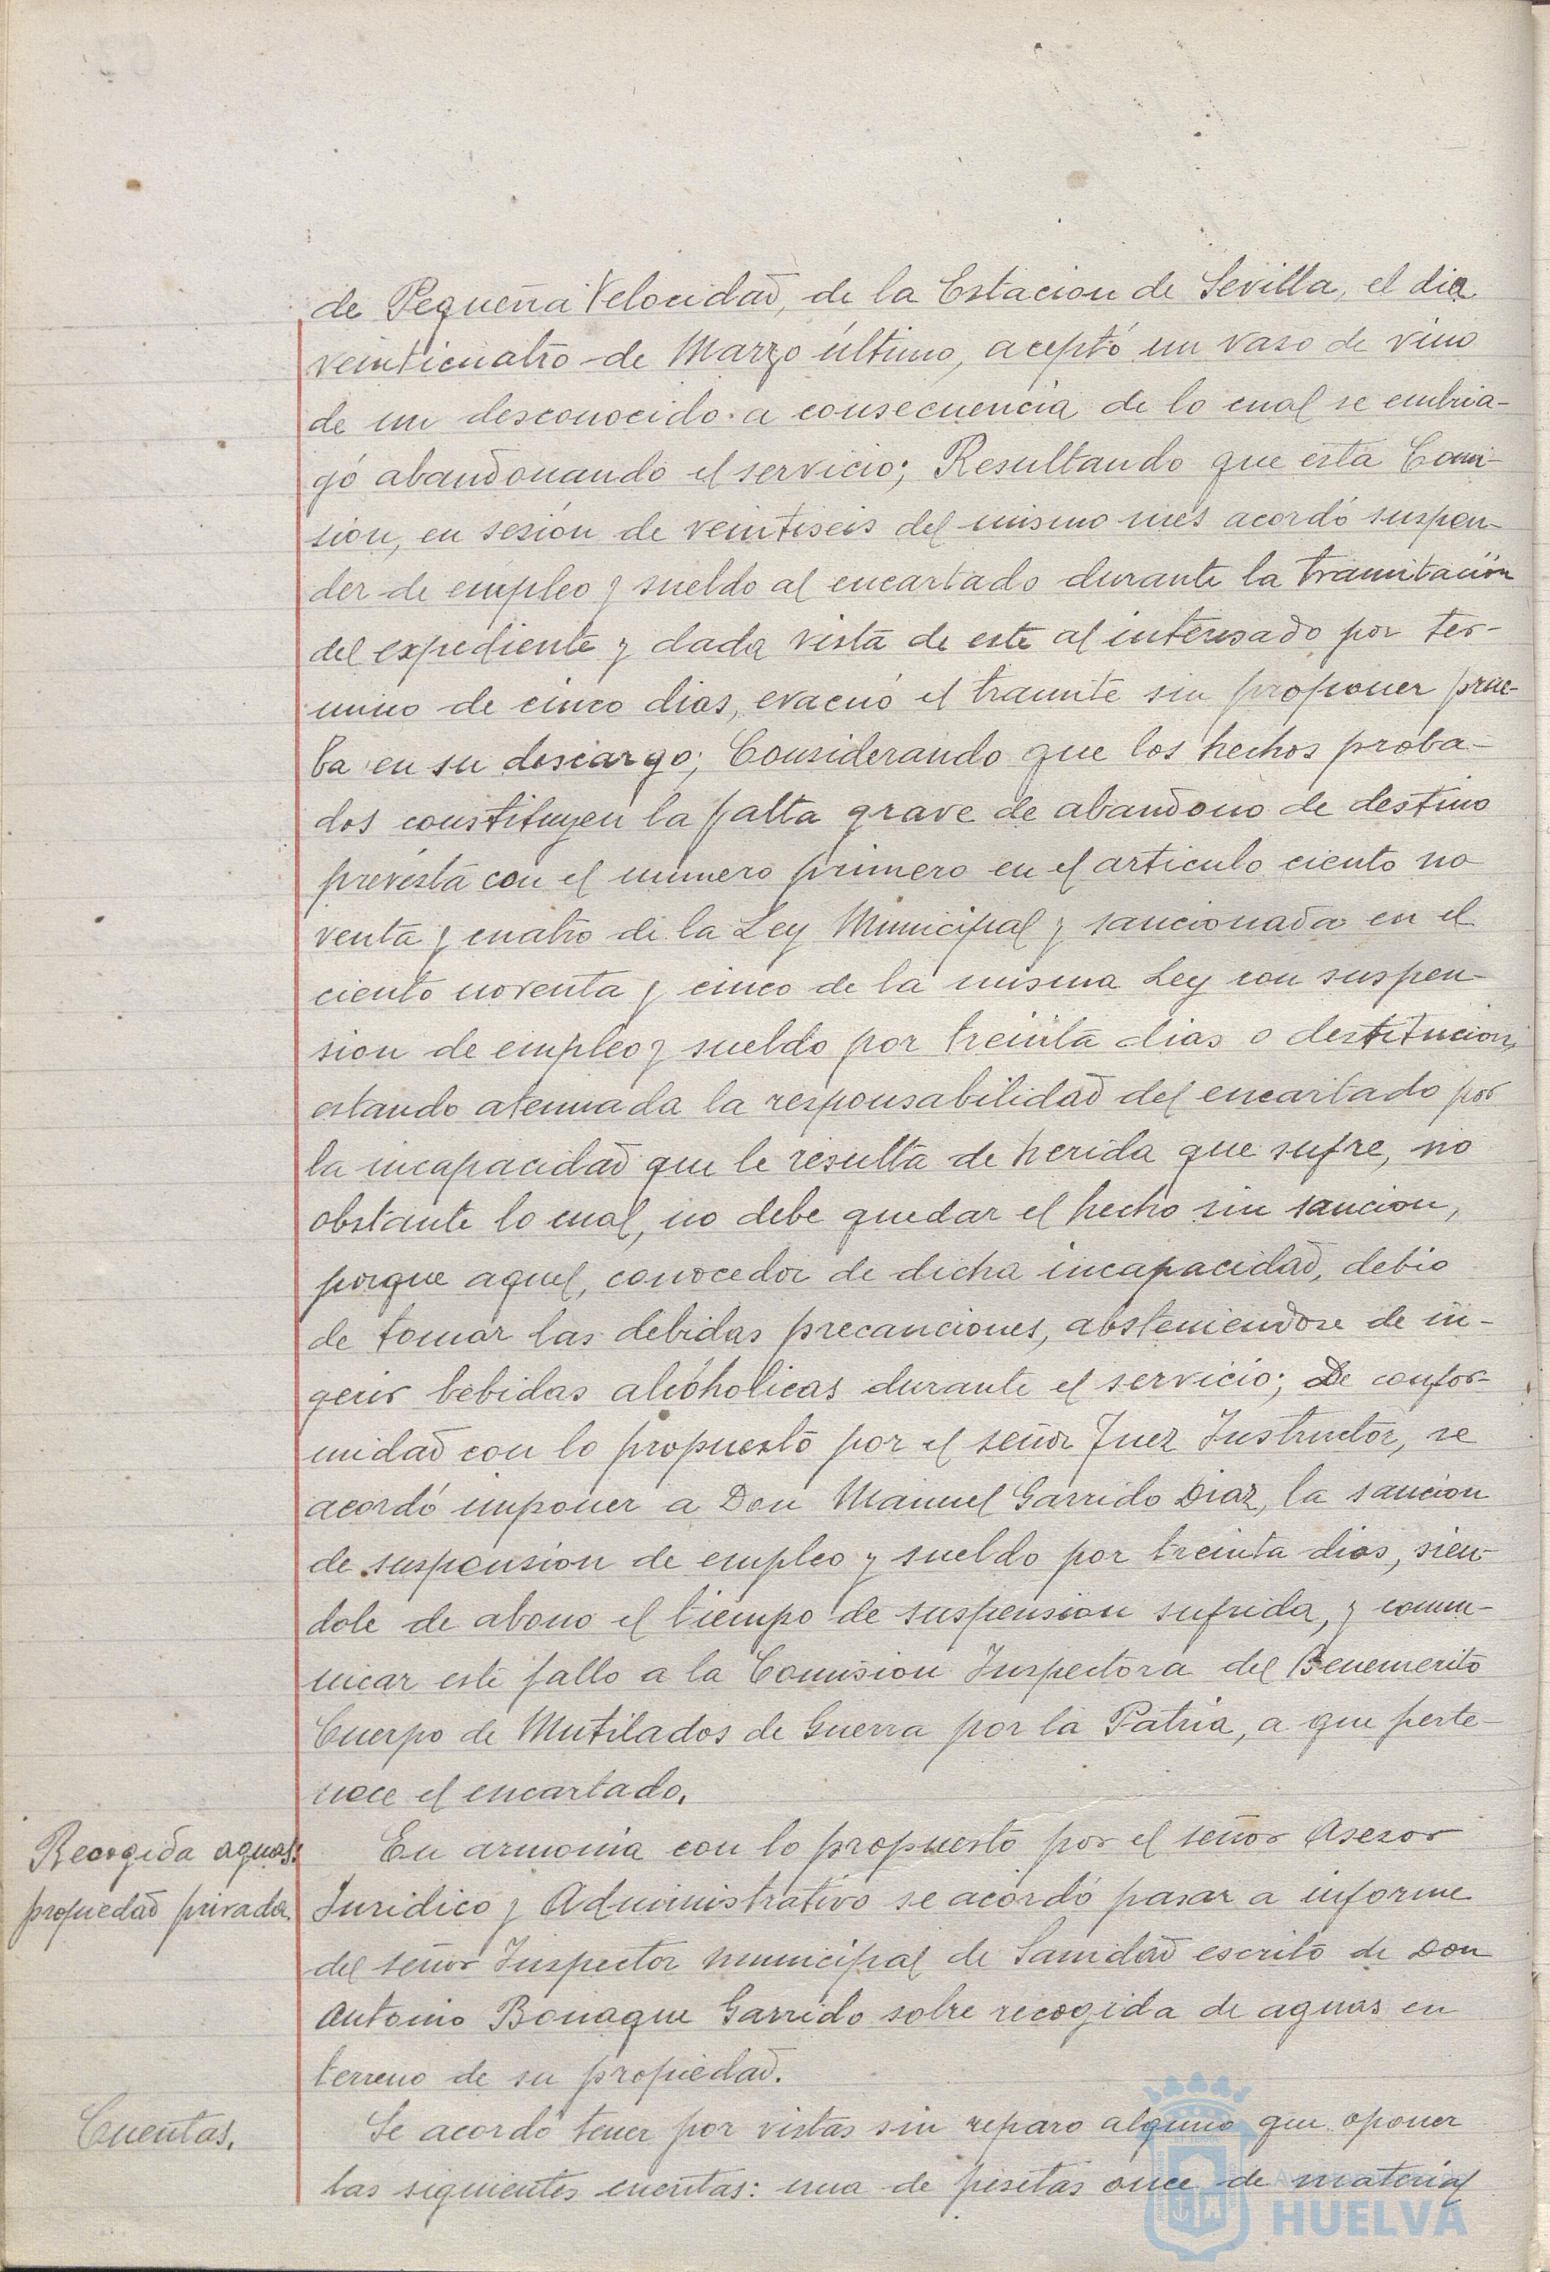 de Pequeña Velocidad, de la Estacion de Sevilla, el dia
veinticuatro de Marzo último, aceptó un vaso de vino
de un desconocido a consecuencia de lo cual se embria-
gó abandonando el servicio; Resultando que esta Comi-
sion, en sesión de veintiseis del mismo mes acordó suspen-
der de empleo y sueldo al encartado durante la tramitación
del expediente y dada vista de este al interesado por ter-
mino de cinco dias, evacuó el tramite sin proponer prue-
ba en su descargo; Considerando que los hechos proba-
dos constituyen la falta grave de abandono de destino
prevista con el numero primero en el articulo ciento no
venta y cuatro de la Ley Municipal y sancionada en el
ciento noventa y cinco de la misma Ley con suspen-
sion de empleo y sueldo por treinta dias o destitucion,
estando atenuada la responsabilidad del encartado por
la incapacidad que le resulta de herida que sufre, no
obstante lo cual, no debe quedar el hecho sin sancion,
porque aquel, conocedor de dicha incapacidad, debio
de tomar las debidas precauciones, absteniendose de in-
gerir bebidas alcóholicas durante el servicio; De confor-
midad con lo propuesto por el señor Juez Instructor, se
acordó imponer a Don Manuel Garrido Diaz, la sancion
de suspension de empleo y sueldo por treinta dias, sien-
dole de abono el tiempo de suspension sufrida, y comu-
nicar este fallo a la Comision Inspectora del Benemerito
Cuerpo de Mutilados de Guerra por la Patria, a que perte-
nece el encartado.
Recogida aguas: En armonia con lo propuesto por el señor Asesor
propiedad privada. Juridico y Administrativo se acordó pasar a informe
del señor Inspector municipal de Sanidad escrito de Don
Antonio Bonaque Garrido sobre recogida de aguas en
terreno de su propiedad.
Cuentas. Se acordó tener por vistas sin reparo alguno que oponer
las siguientes cuentas: una de pesetas once de material
HUELVA